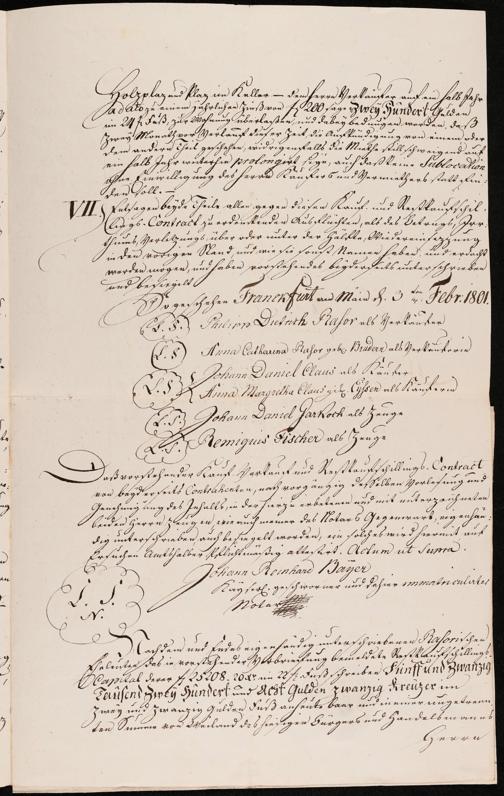 Holzplaz und Plaz im Keller — dem Herrn Verkäufer auf ein halb Jahr
a dato zu einem jährlichen Zinß von f 200 sage Zwey Hundert Gulden
im 24 f. Fuß, zur Wohnung überlassen, und dabey bedungen worden, daß 3
Monath vor Verlauf dieser Zeit die Aufkündigung von einem oder
dem andern Theil geschehen, widrigenfalls die Miethe stillschweigend auf
ein halb Jahr weiterhin prolongirt seye, auch daß keine Sublocation
ohne Einwilligung des Herrn Käufers und Vermiethers statt finden
den soll. —
VII) Entsagen beyde Theile allen gegen diesen Kauf- und Restkaufschil-
lings-Contract zu erdenkenden Ausflüchten, als des Betrugs, Irr-
thums, Verletzung über oder unter der Hälfte, Wiedereinsetzung
in den vorigen Stand, und wie sie sonst Namen haben, und erdacht
werden mögen, und haben vorstehendes beyderseits unterschrieben
und besiegelt
So geschehen Franckfurt am Mäin d. 3 ten Febr. 1801.
L. S. Dietrich Rasor als Verkäufer
L. S. Anna Catharina Rasor geb. als Verkäuferin
L. S. Johann Daniel Claus als Käufer
Anna Margretha Claus geb. als Käuferin
L. S. Johann Daniel als Zeuge
L. S. Remigius Fischer als Zeuge
Daß vorstehender Kauf- Verkauf und Restkaufschillings-Contract
von beyderseits Contrahenten, nach vorgängig desselben Vorlesung und
Genehmigung des Inhalts, in der hierzu erbetenen und mit unterzeichneten
beiden Herrn Zeugen, wie auch meiner des Notars Gegenwart, eigenhän-
dig unterschrieben auch besiegelt worden, ein solches wird hiermit auf
Ersuchen Amthalber pflichtmäßig attestirt. Actum ut supra.
Johann Reinhard Bayer
Kayserl. geschworner und dahier immatriculirter
Notar
L. S.
N.
Nachdem uns Endes eigenhändig unterschriebenen Rasorischen
Eheleuten das in vorstehender Verbriefung bemeldete Restkaufschillings-
Capital derer f 25208. 20 xr im 22 f. Fuß schreiben Fünff und Zwanzig
Tausend Zwey Hundert und Acht Gulden Zwanzig Kreuzer im
Zwey und Zwanzig Gulden Fuß anheute baar und in einer ungetrenn-
ten Summe von Weiland des hiesigen Burgers und Handelsmanns
Herrn